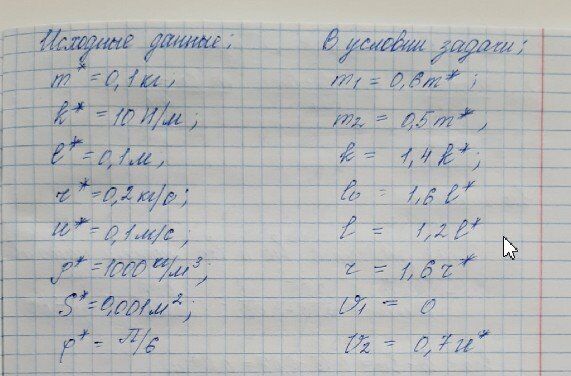 Исходные данные;
m* = 0,1 кг,
k* = 10 Н/м;
l* = 0,1 м,
r* = 0,2 кг/с;
u* = 0,1 м/с;
ρ* = 1000 кг/м³;
S* = 0,001 м²;
φ* = π/6
В условии задачи;
m₁ = 0,6m*;
m₂ = 0,5m*,
k = 1,4k*;
l₀ = 1,6l*
l = 1,2l*
r = 1,6r*
υ₁ = 0
υ₂ = 0,7u*